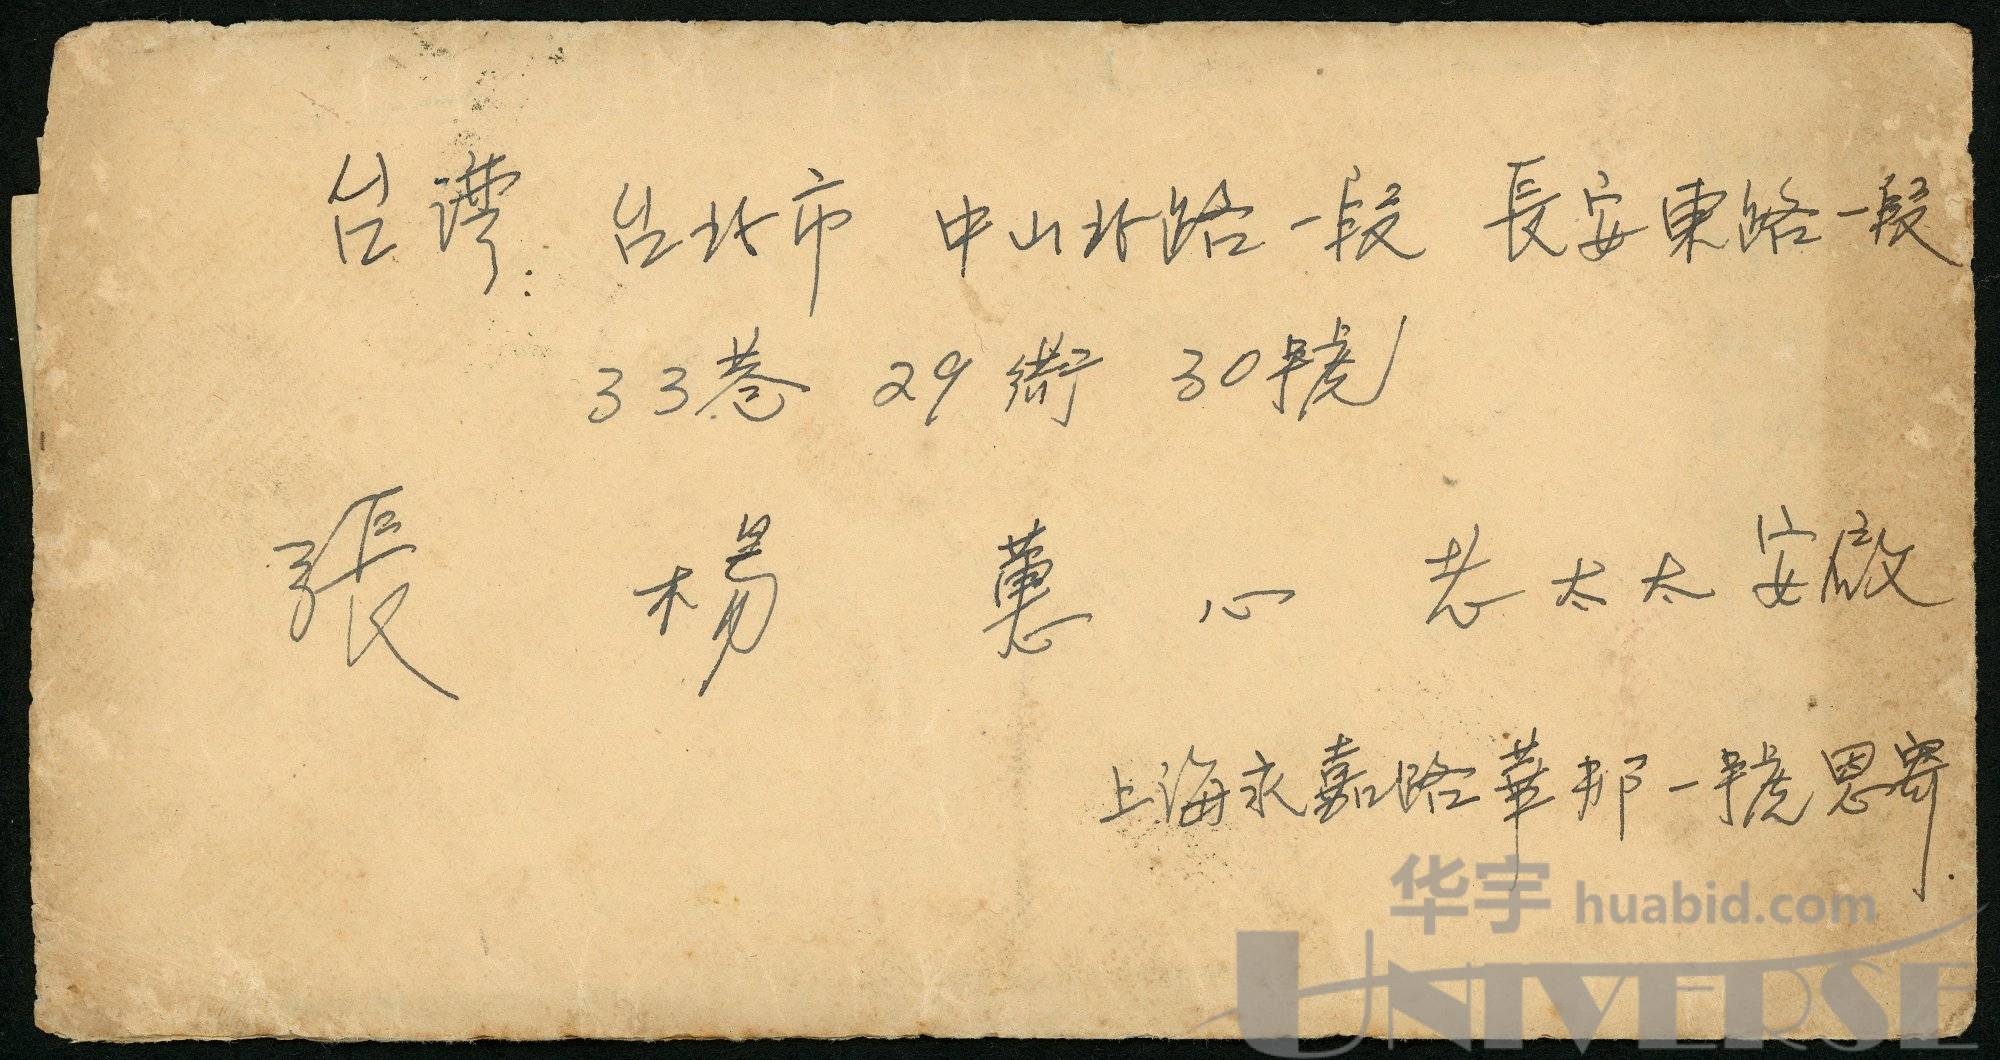 台灣: 台北市 中山北路一段 長安東路一段
33巷 29衖 30號
張楊蕙心老太太安啟
上海永嘉路華邨一號恩寄.
华宇 huabid.com
UNIVERSE